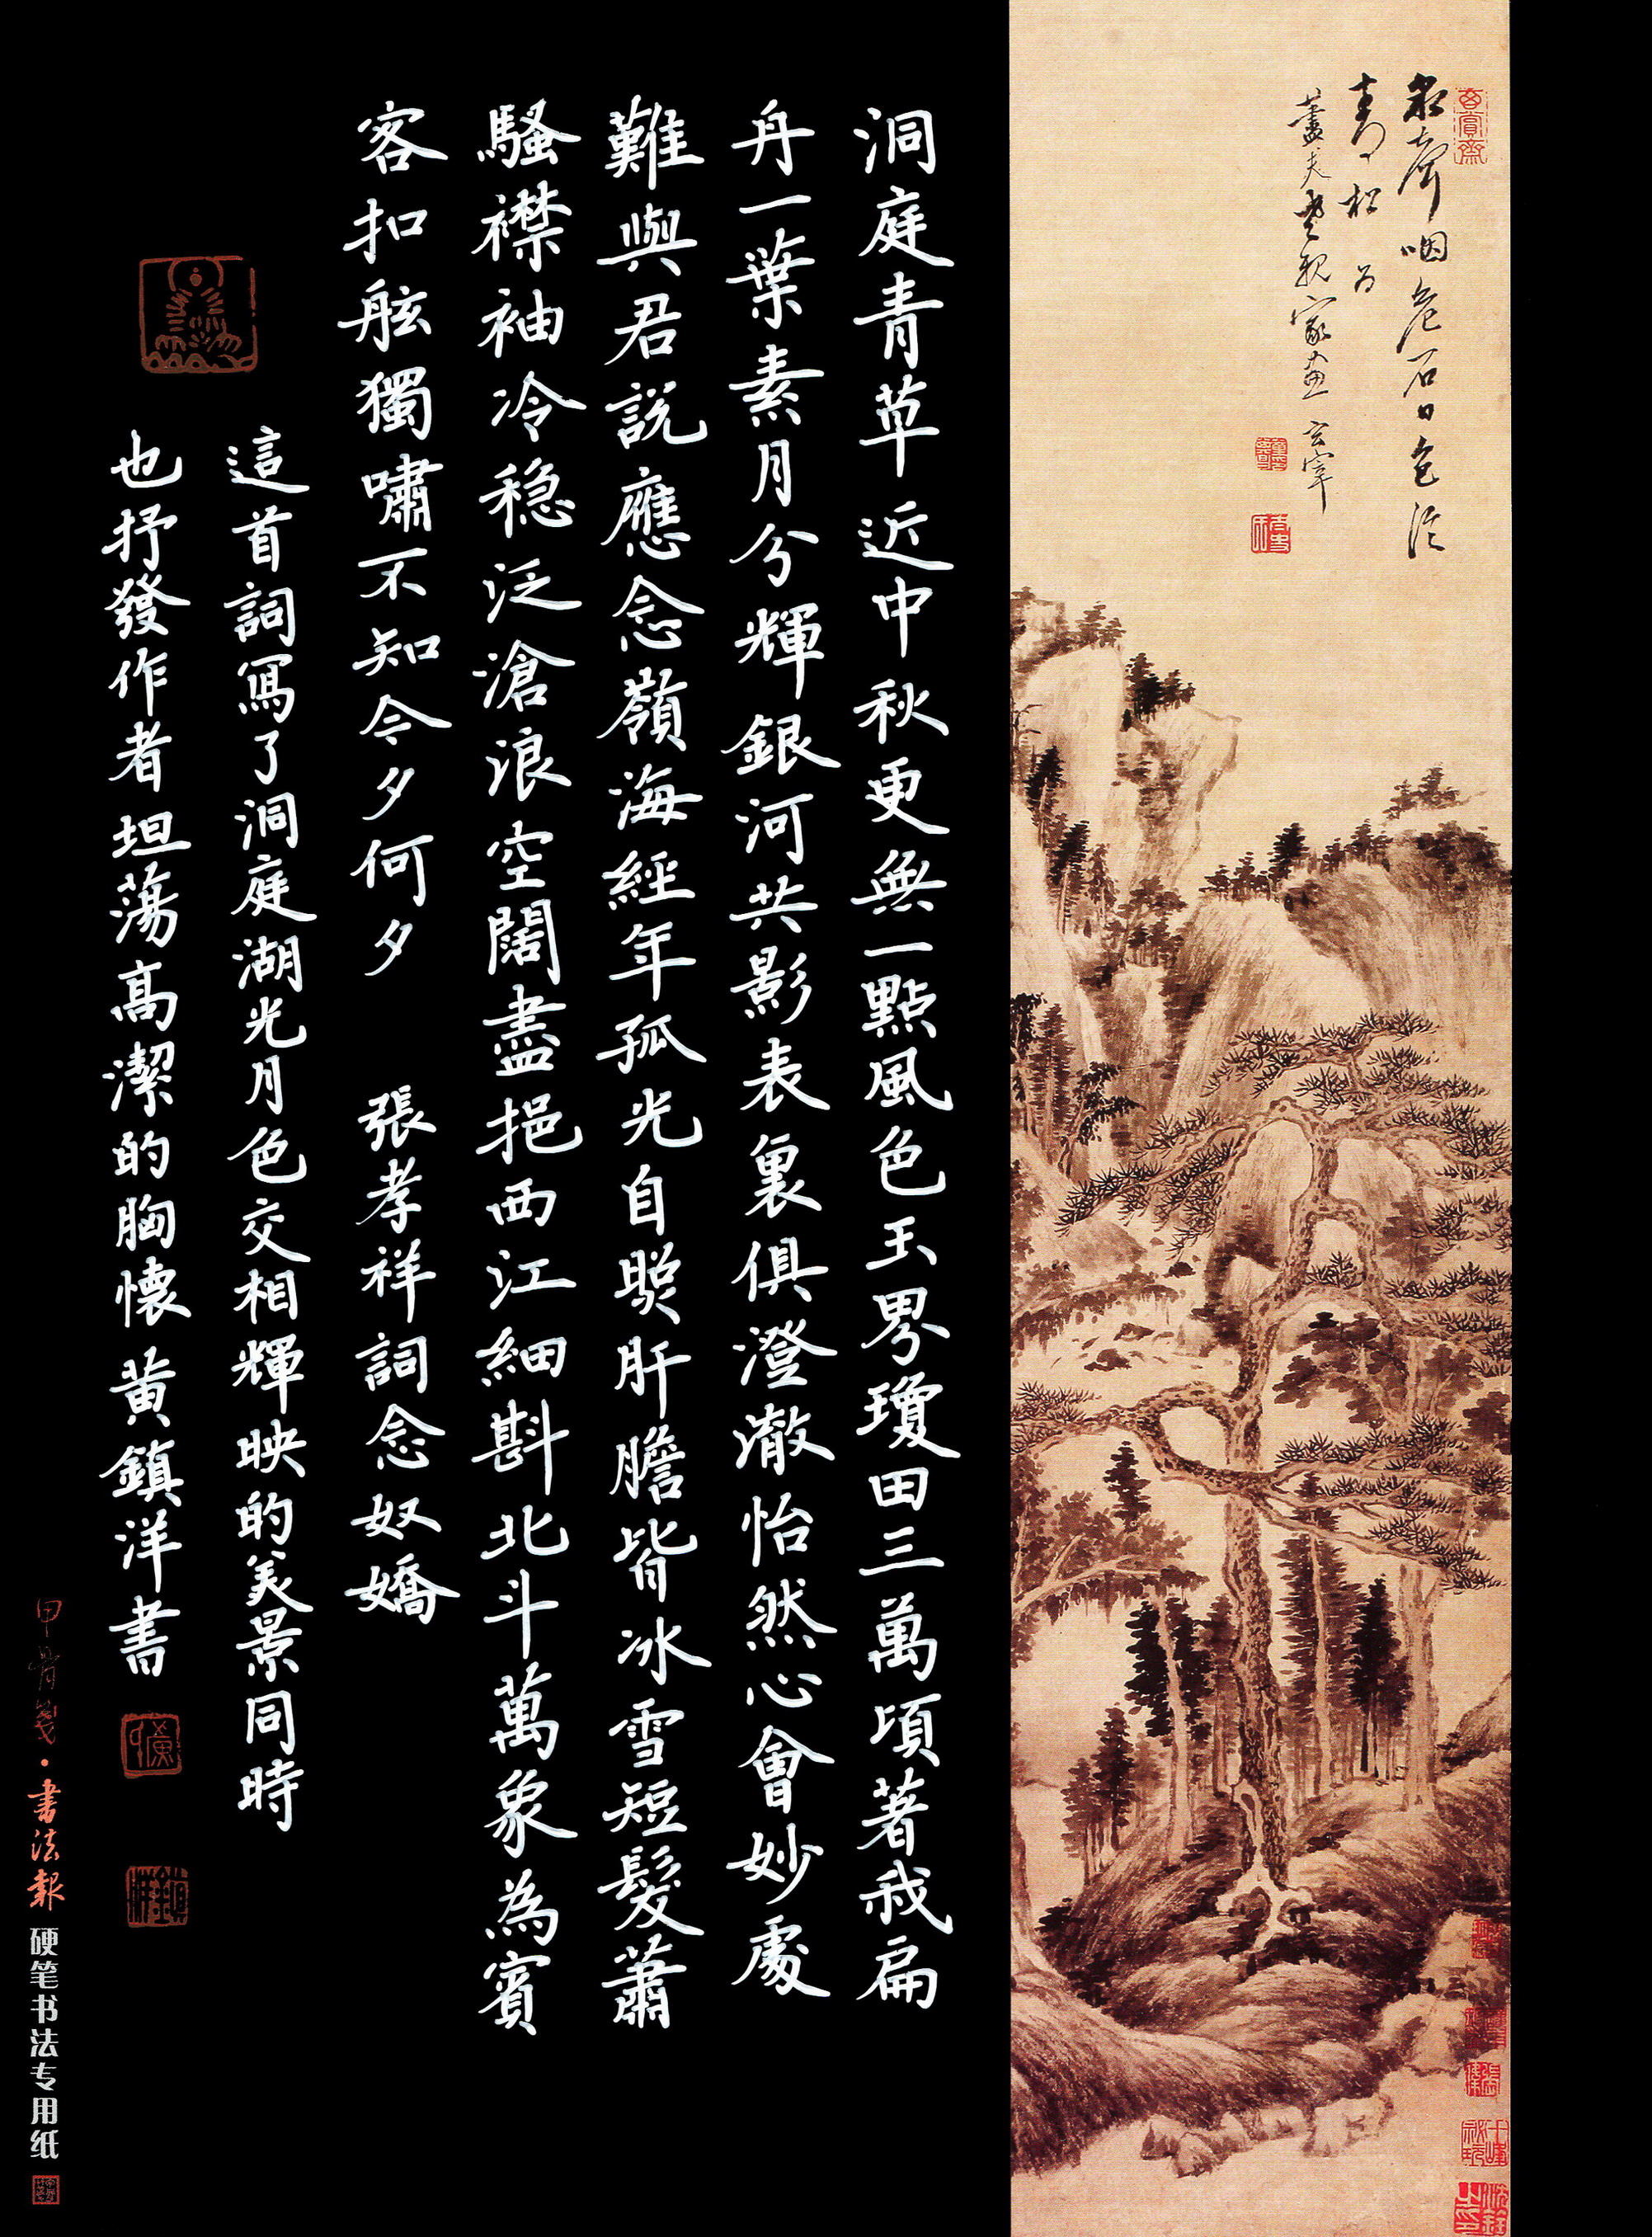 泉聲咽危石日色冷
青松 為
夫老親家畫 玄宰
洞庭青草近中秋更無一點風色玉界瓊田三萬頃著我扁
舟一葉素月分輝銀河共影表裏俱澄澈怡然心會妙處
難與君說應念嶺海經年孤光自照肝膽皆冰雪短髮蕭
騷襟袖冷稳泛滄浪空闊盡挹西江細斟北斗萬象為賓
客扣舷獨嘯不知今夕何夕 張孝祥詞念奴嬌
這首詞寫了洞庭湖光月色交相輝映的美景同時
也抒發作者坦蕩高潔的胸懷 黃鎮洋書
甲骨箋·書法報 硬笔书法专用纸